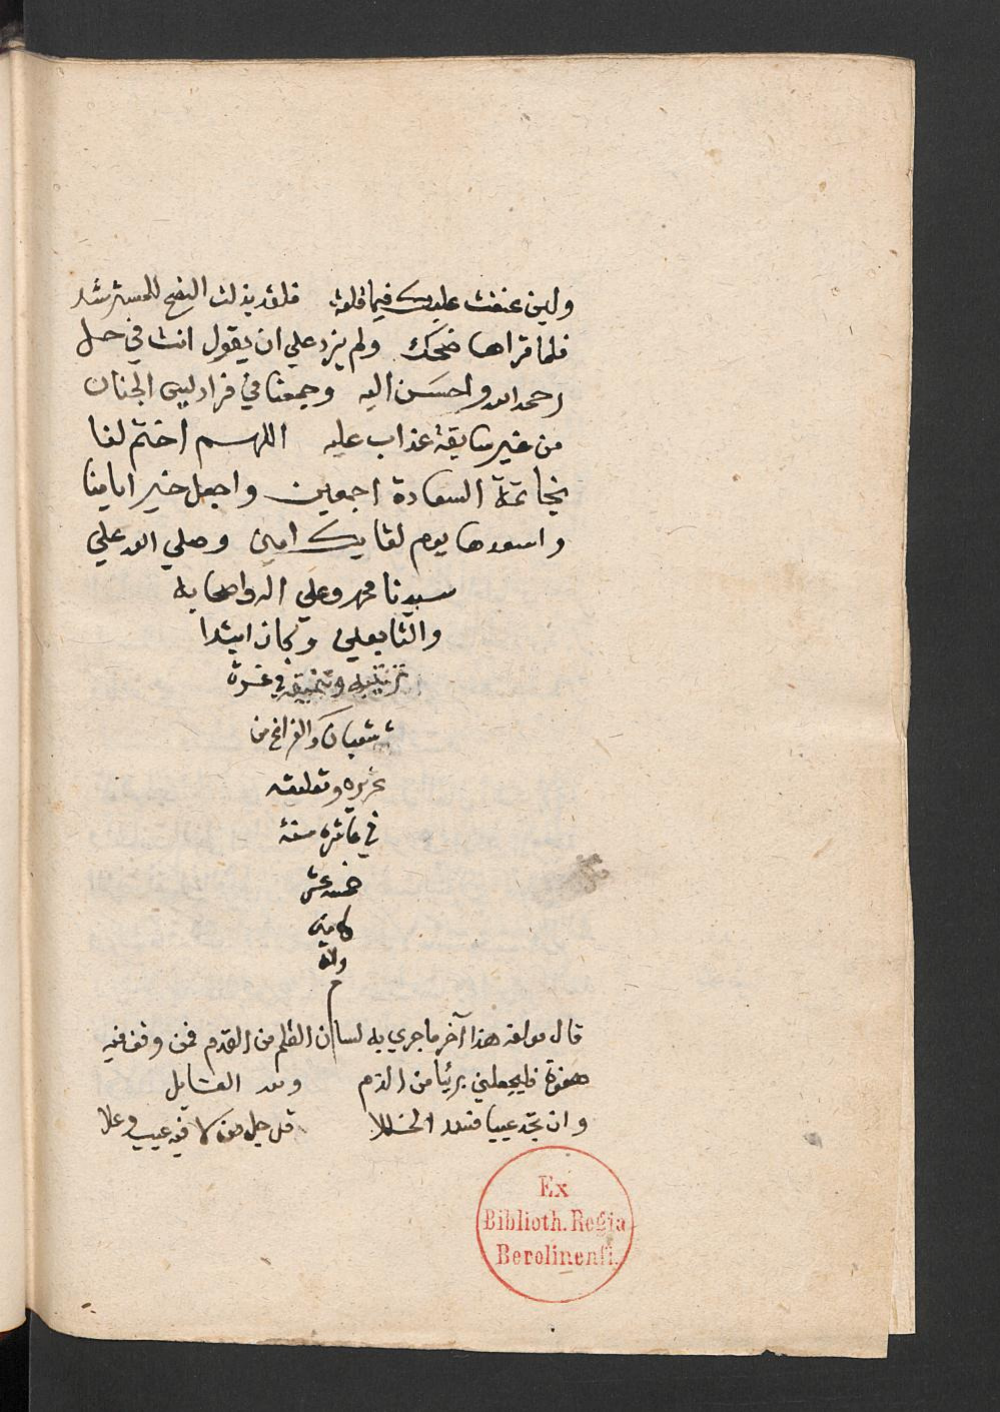 ولين عنفت عليك فيما قلته فلقد بذلت النصح للمسترشد
فلما قراها ضحك ولم يزد علي ان يقول انت في حل
رحمه الله واحسن اليه وجمعنا في فراديس الجنان
من غير سابقة عذاب عليه اللهم اختم لنا
بخاتمة السعادة اجمعين واجعل خير ايامنا
واسعدها يوم لقايك امين وصلي الله علي
سيدنا محمد وعلي اله واصحابه
والتابعين وكان ابتدا
ترتيبه وتنميقه في غرة
شعبان والفراغ من
تحريره وتعليقه
في عاشره سنة
خمسة عشر
ومائة
قال مولفه هذا آخر ما جري به لسان القلم من القدم فمن وقف فيه
هفوة فليجعلني بريًا من الذم ولله القايل
وان تجد عيبا فسد الخللا فل جل من لا فيه عيب وعلا
Ex
Biblioth. Regia
Berolinensi.